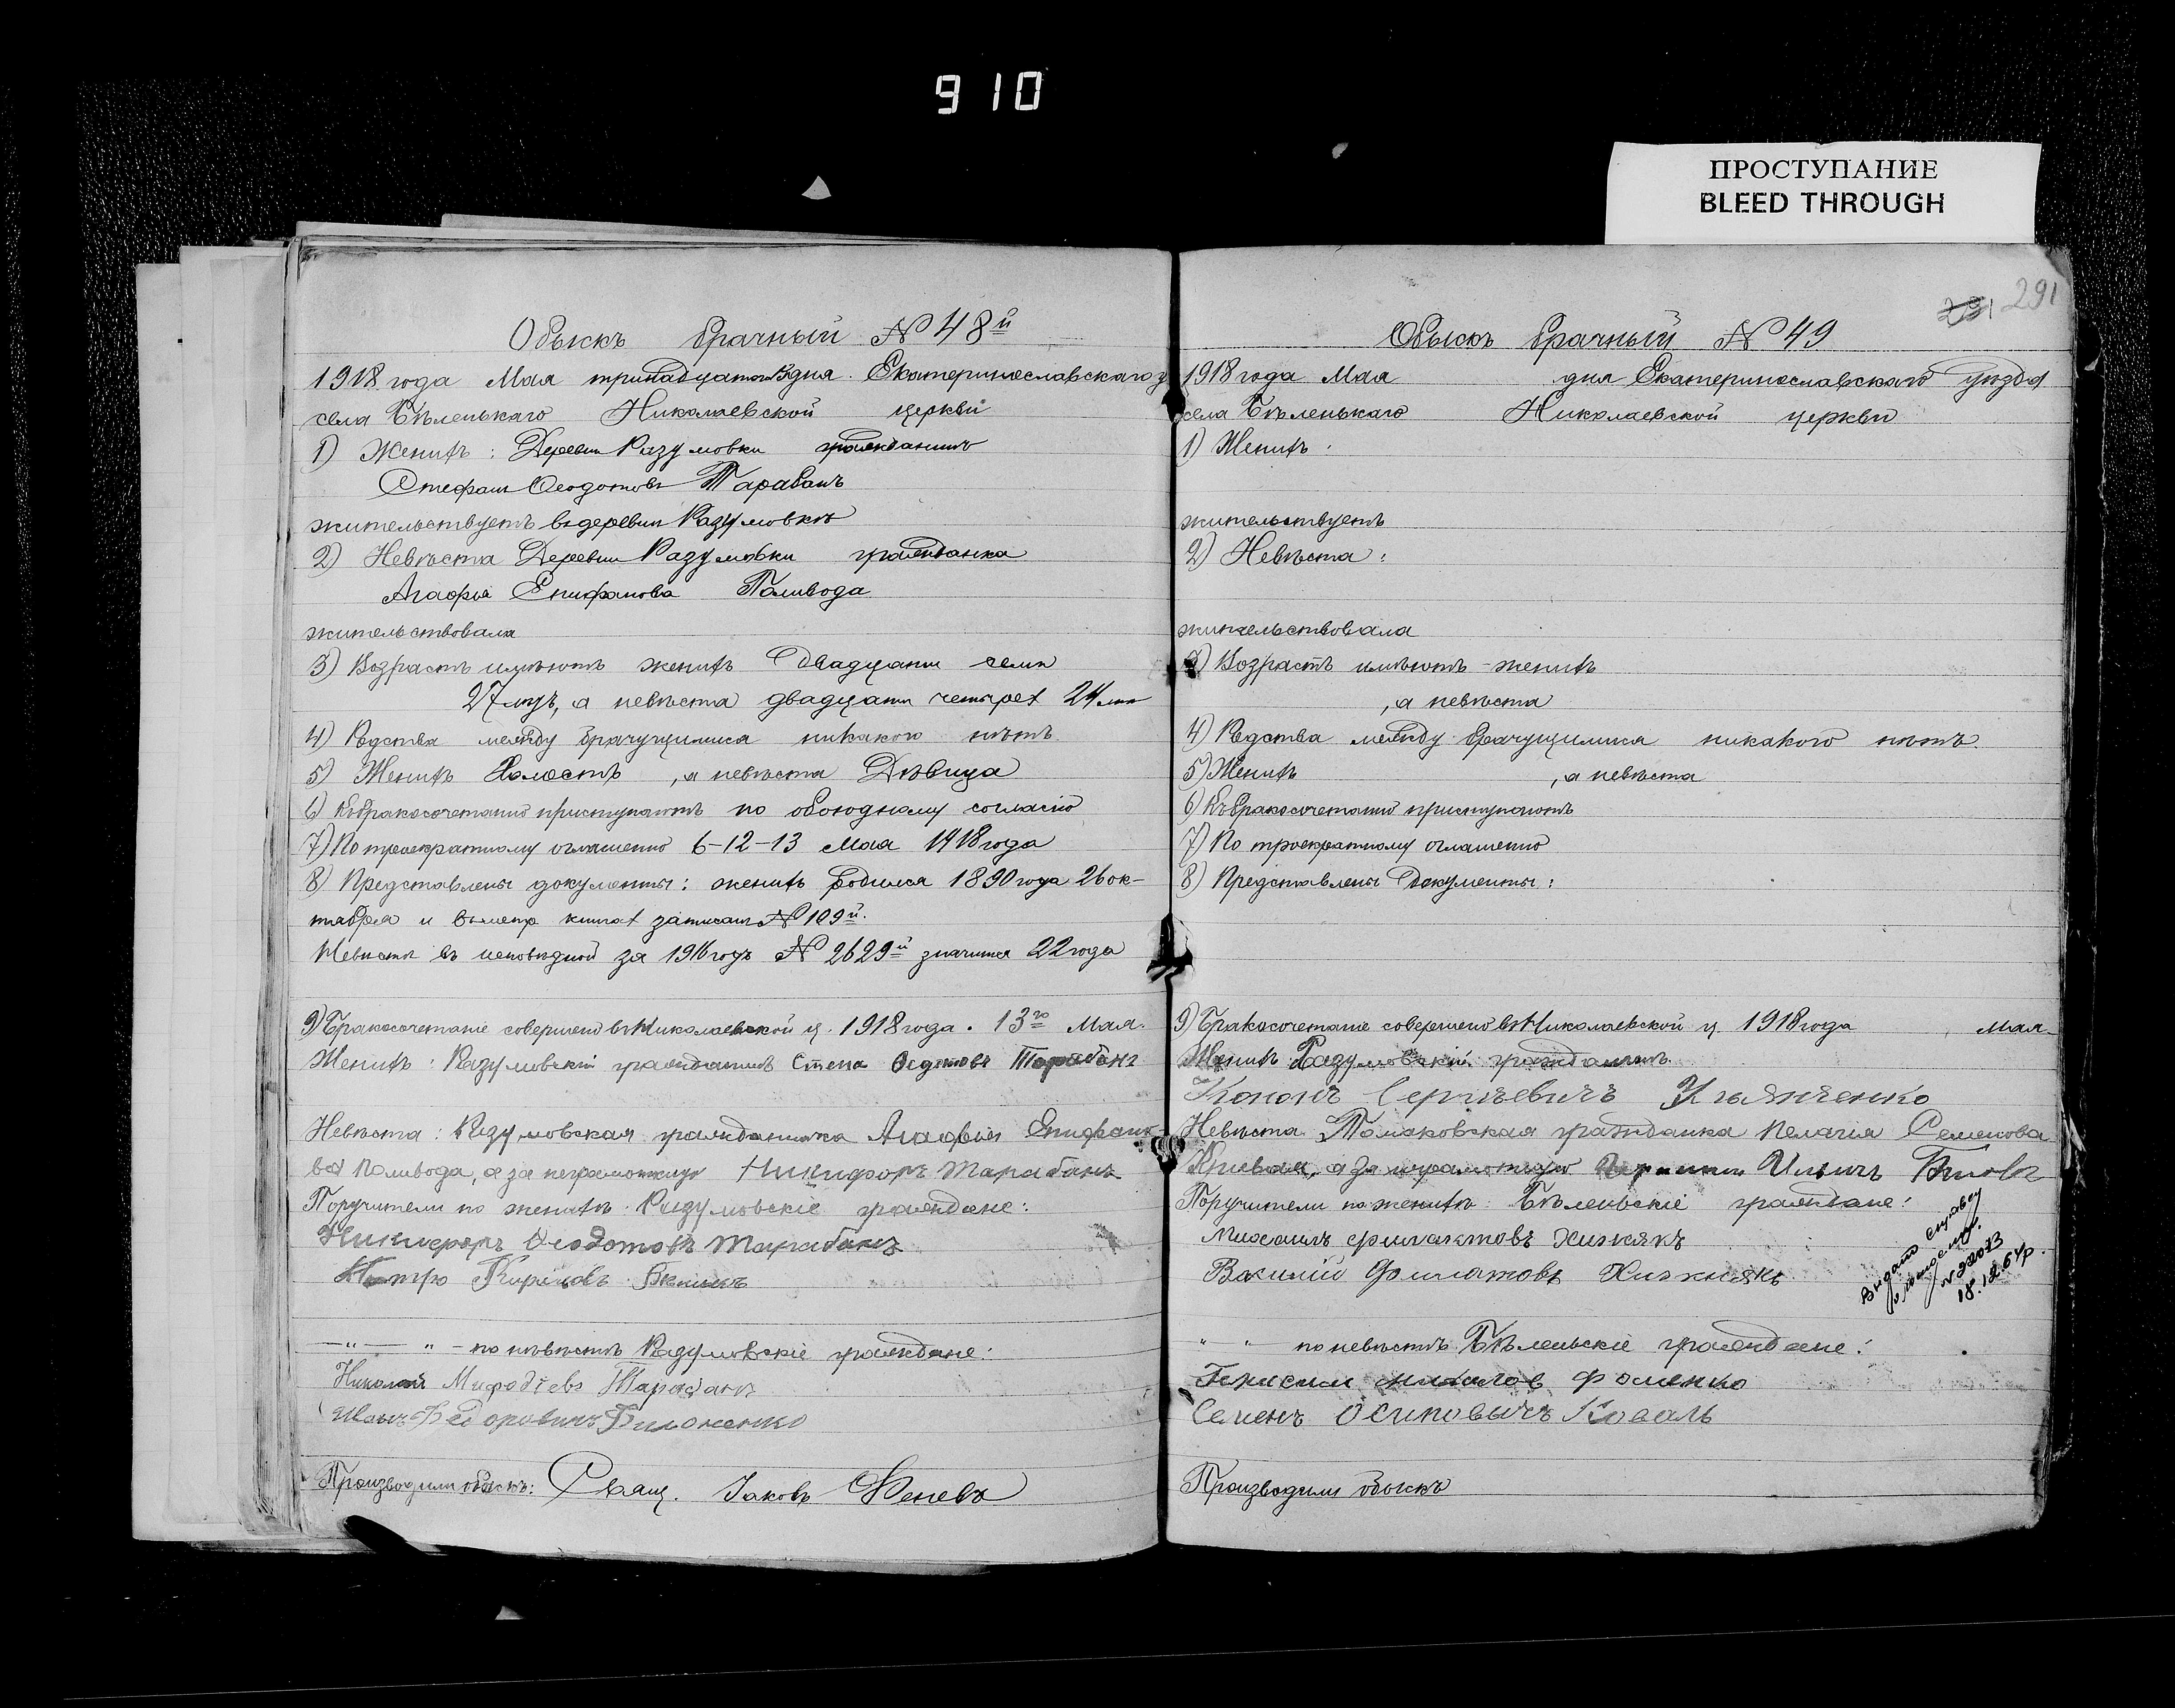 910
ПРОСТУПАНИЕ
BLEED THROUGH
Обыскъ брачный № 48й
1918 года Мая тринадцатаго дня Екатеринославскаго у
села Бѣленькаго Николаевской церкви
1) Женихъ: Деревни Разумовки гражданинъ
Стефанъ Ѳеодотовъ Тарабанъ
жительствуетъ въ деревни Разумовкѣ
2) Невѣста Деревни Разумовки гражданка
Агафья Епифанова Паливода
жительствовала
3) Возрастъ имѣютъ женихъ двадцати семи
27 лѣтъ, а невѣста двадцати четырех 24 лѣт
4) Родства между брачущимися никакого нѣтъ
5) Женихъ Холостъ, а невѣста Дѣвица
6) Къ бракосочетанію приступаютъ по обоюдному согласію
7) По троекратному оглашению 6-12-13 Мая 1918 года
8) Представлены документы: женихъ родился 1890 года 26 ок-
тября и въ метр книгѣ записанъ № 109й.
Невѣста въ исповѣдной за 1916 годъ № 2629й значится 22 года
9) Бракосочетаніе совершено въ Николаевской ц. 1918 года. 13го Мая.
Женихъ: Разумовскій гражданинъ Степа Ѳедотовъ Тарабанъ
Невѣста: Разумовская гражданка Агафья Епифано
ва Паливода, а за неграмотную Никифоръ Тарабанъ
Поручители по женихѣ: Разумовскіе граждане:
Никифоръ Ѳеодотовъ Тарабанъ
Петро Кириловъ
—"— " — по невѣстѣ Разумовскіе граждане:
Николай Мифодіевъ Тарабанъ
Иванъ Федоровичъ
Производили обыскъ: Свящ. Іаковъ
291 291
Обыскъ брачный № 49
1918 года Мая дня Екатеринославскаго уѣзда
села Бѣленькаго Николаевской церкви
1) Женихъ:
жительствуетъ
2) Невѣста:
жительствовала
3) Возрастъ имѣютъ - женихъ
, а невѣста
4) Родства между брачущимися никакого нѣтъ.
5) Женихъ , а невѣста
6) Къ бракосочетанію приступаютъ
7) По троекратному оглашению
8) Представлены документы:
9) Бракосочетаніе совершено въ Николаевской ц. 1918 года , Мая
Женихъ Разумовскій гражданинъ
Кононъ Сергѣевичъ Ульянченко
Невѣста Томаковская гражданка Пелагия Семенова
Кривая, а за неграмотную Ильичъ
Поручители по женихѣ Бѣленьскіе граждане:
Михаилъ Хижнякъ
Василій Филатовъ Хижнякъ
Видано справку
№ 22073
18.12.64р.
" " по невѣстѣ Бѣленьскіе граждане:
Фоменко
Семенъ Осиповычъ Коваль
Производили обыскъ